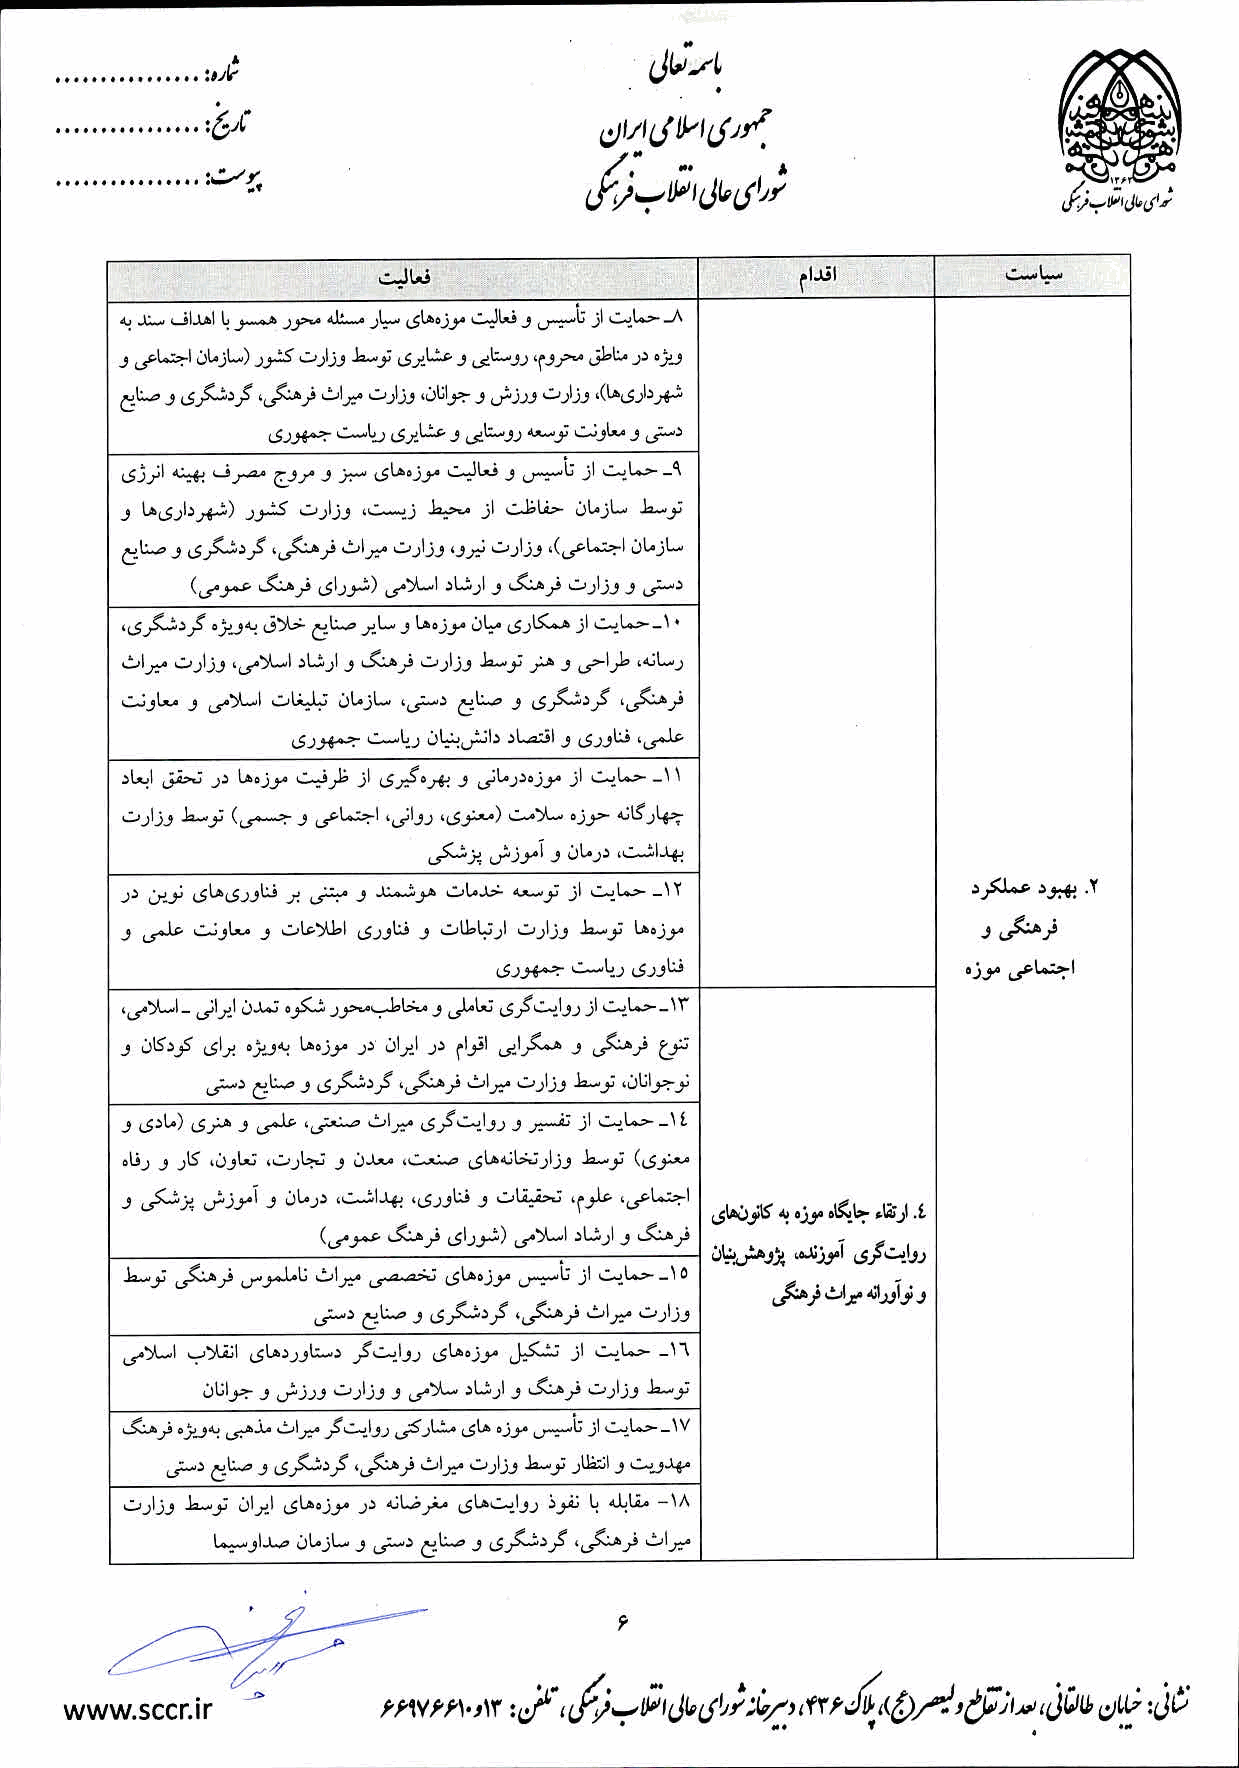 باسمه تعالی
جمهوری اسلامی ایران
شورای عالی انقلاب فرهنگی
شماره: ................
تاریخ: ................
پیوست: ................
۱۳۶۳
شورای عالی انقلاب فرهنگی
سیاست
اقدام
فعالیت
۲. بهبود عملکرد
فرهنگی و
اجتماعی موزه
۸ـ حمایت از تأسیس و فعالیت موزه‌های سیار مسئله محور همسو با اهداف سند به
ویژه در مناطق محروم، روستایی و عشایری توسط وزارت کشور (سازمان اجتماعی و
شهرداری‌ها)، وزارت ورزش و جوانان، وزارت میراث فرهنگی، گردشگری و صنایع
دستی و معاونت توسعه روستایی و عشایری ریاست جمهوری
۹ـ حمایت از تأسیس و فعالیت موزه‌های سبز و مروج مصرف بهینه انرژی
توسط سازمان حفاظت از محیط زیست، وزارت کشور (شهرداری‌ها و
سازمان اجتماعی)، وزارت نیرو، وزارت میراث فرهنگی، گردشگری و صنایع
دستی و وزارت فرهنگ و ارشاد اسلامی (شورای فرهنگ عمومی)
۱۰ـ حمایت از همکاری میان موزه‌ها و سایر صنایع خلاق به‌ویژه گردشگری،
رسانه، طراحی و هنر توسط وزارت فرهنگ و ارشاد اسلامی، وزارت میراث
فرهنگی، گردشگری و صنایع دستی، سازمان تبلیغات اسلامی و معاونت
علمی، فناوری و اقتصاد دانش‌بنیان ریاست جمهوری
۱۱ـ حمایت از موزه‌درمانی و بهره‌گیری از ظرفیت موزه‌ها در تحقق ابعاد
چهارگانه حوزه سلامت (معنوی، روانی، اجتماعی و جسمی) توسط وزارت
بهداشت، درمان و آموزش پزشکی
۱۲ـ حمایت از توسعه خدمات هوشمند و مبتنی بر فناوری‌های نوین در
موزه‌ها توسط وزارت ارتباطات و فناوری اطلاعات و معاونت علمی و
فناوری ریاست جمهوری
۴. ارتقاء جایگاه موزه به کانون‌های
روایت‌گری آموزنده، پژوهش‌بنیان
و نوآورانه میراث فرهنگی
۱۳ـ حمایت از روایت‌گری تعاملی و مخاطب‌محور شکوه تمدن ایرانی ـ اسلامی،
تنوع فرهنگی و همگرایی اقوام در ایران در موزه‌ها به‌ویژه برای کودکان و
نوجوانان، توسط وزارت میراث فرهنگی، گردشگری و صنایع دستی
۱۴ـ حمایت از تفسیر و روایت‌گری میراث صنعتی، علمی و هنری (مادی و
معنوی) توسط وزارتخانه‌های صنعت، معدن و تجارت، تعاون، کار و رفاه
اجتماعی، علوم، تحقیقات و فناوری، بهداشت، درمان و آموزش پزشکی و
فرهنگ و ارشاد اسلامی (شورای فرهنگ عمومی)
۱۵ـ حمایت از تأسیس موزه‌های تخصصی میراث ناملموس فرهنگی توسط
وزارت میراث فرهنگی، گردشگری و صنایع دستی
۱۶ـ حمایت از تشکیل موزه‌های روایت‌گر دستاوردهای انقلاب اسلامی
توسط وزارت فرهنگ و ارشاد سلامی و وزارت ورزش و جوانان
۱۷ـ حمایت از تأسیس موزه های مشارکتی روایت‌گر میراث مذهبی به‌ویژه فرهنگ
مهدویت و انتظار توسط وزارت میراث فرهنگی، گردشگری و صنایع دستی
۱۸- مقابله با نفوذ روایت‌های مغرضانه در موزه‌های ایران توسط وزارت
میراث فرهنگی، گردشگری و صنایع دستی و سازمان صداوسیما
۶
نشانی: خیابان طالقانی، بعد از تقاطع ولیعصر (عج)، پلاک ۴۳۶، دبیرخانه شورای عالی انقلاب فرهنگی، تلفن: ۱۳و۶۶۹۷۶۶۱۰
www.sccr.ir